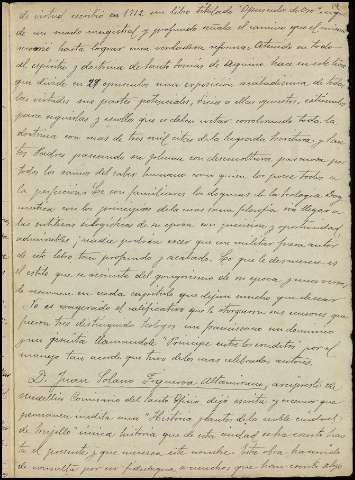 de virtud escribió en 1712 un libro titulado "Opusculos de Oro"
de un modo magistral y profundo señala el camino que el
hasta lograr una verdadera reforma. Atendo en todo
al espíritu y doctrina de Santo Tomás de Aquino hace en este libro
que divide en 27 opusculos una exposición de todas
las virtudes sus partes potenciales, vicios a ellas opuestos, estímulos
para seguirlas y escollos que se deben evitar corroborando toda la
doctrina con mas de tres mil citas de la Sagrada Escritura y San-
tos Padres paseando su pluma con desenvoltura por
todos los ramos del saber humano como quien los posee todos a
la perfección. Le son familiares los dogmas de la teología Dog-
mática con los principios de la mas sana filosofía sin llegar a
las sutilezas silogísticas de su época con precisión y oportunidad
admirables; nadie podría creer que un militar fuera autor
de este libro tan profundo y acabado. Lo que le desmerece es
el estilo que se resiente del gongorismo de su época, y unos versos
de resumen en cada capítulo que dejan mucho que desear.
No es exagerado el calificativo que le otorgaron sus censores que
fueron tres distinguidos teólogos un franciscano un dominico
y un jesuita llamandole "Principe entre los eruditos" por el
manejo tan acerta que tuvo de los mas celebrados autores.
D. Juan Solano Figueroa Altamirano, arcipreste en
Medellin Comisario del Santo Oficio dejó escrita y creemos que
permanece inedita una "Historia y Santos de la noble ciudad
de Trujillo" única historia que de esta ciudad se ha escrito has-
ta el presente y que merezca este nombre. Esta obra ha servido
de consulta por su fidedigna a muchos que han escrito algo